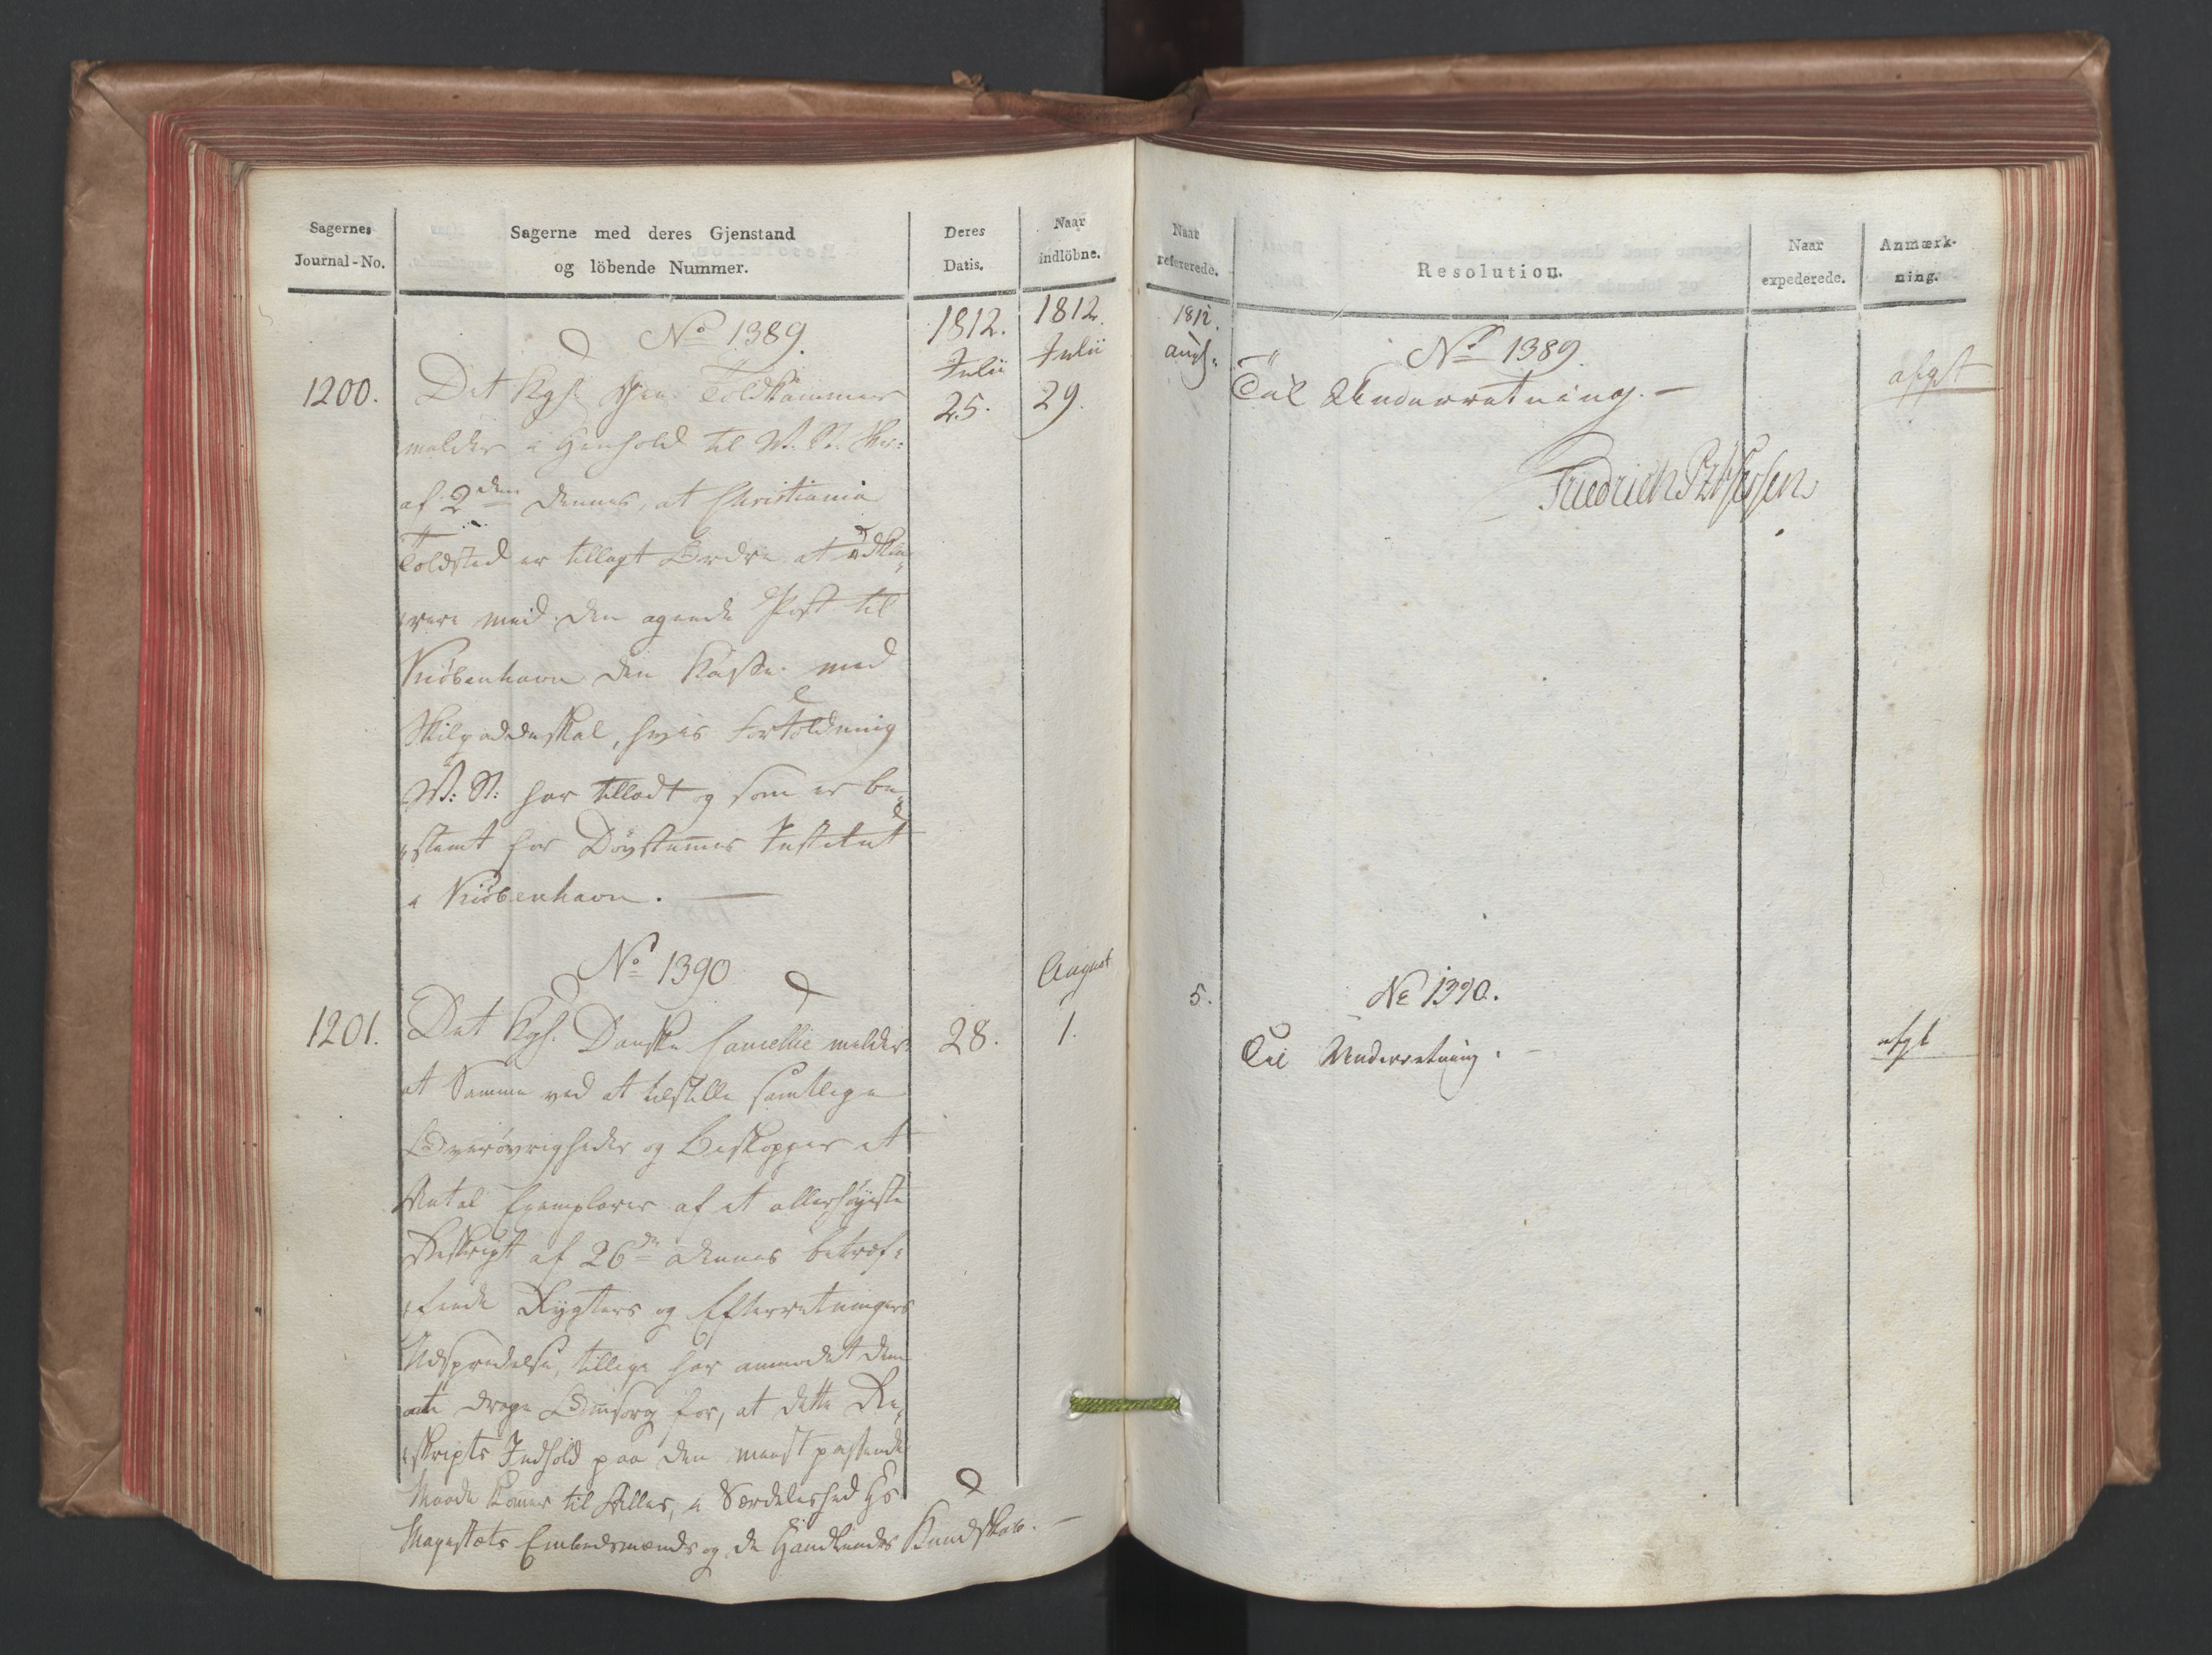 Sagernes
Journal-No.
Sagerne med deres Gjenstand
og löbende Nummer.
Deres
Datis.
Naar
indlöbne.
1812.
Julii
1812.
Julii
No 1389.
1200.
25.
29.
Det Kgl: Gen: Toldkammer
melder i Henhold til V. St. Skr:
af 2den dennes, at Christiania
Toldsted er tillagt Ordre at udkla-
rere med den agende Post til
Kiöbenhavn den Kasse med
Skilpaddeskal, hvis Fortoldning
V: St: har tilladt og som er be-
stemt for Døvstummes Institut
i Kiöbenhavn.
No 1390
August
1201.
28.
1.
Det Kgl. Danske Cancellie melder
at Samme ved at tilstille samtlige
Overøvrigheder og Biskopper et
Antal Exemplarer af et allerhøieste
Reskript af 26de dennes betræf-
fende Rygters og Efterretningers
Udspredelse, tillige har anmodet dem
at drage Omsorg for, at dette Re-
skripts Indhold paa den meest passende
Maade kommer til Alles, i Særdeleshed Hs
Majestæts Embedsmænds og de Handlendes Kundskab.
Naar
refererede.
Resolution.
Naar
expederede.
Anmærk-
ning.
1812.
Aug:
No 1389.
Til Underretning.
afgt
Friedrich PzHessen
5.
No 1390.
Til Underretning.
afgt